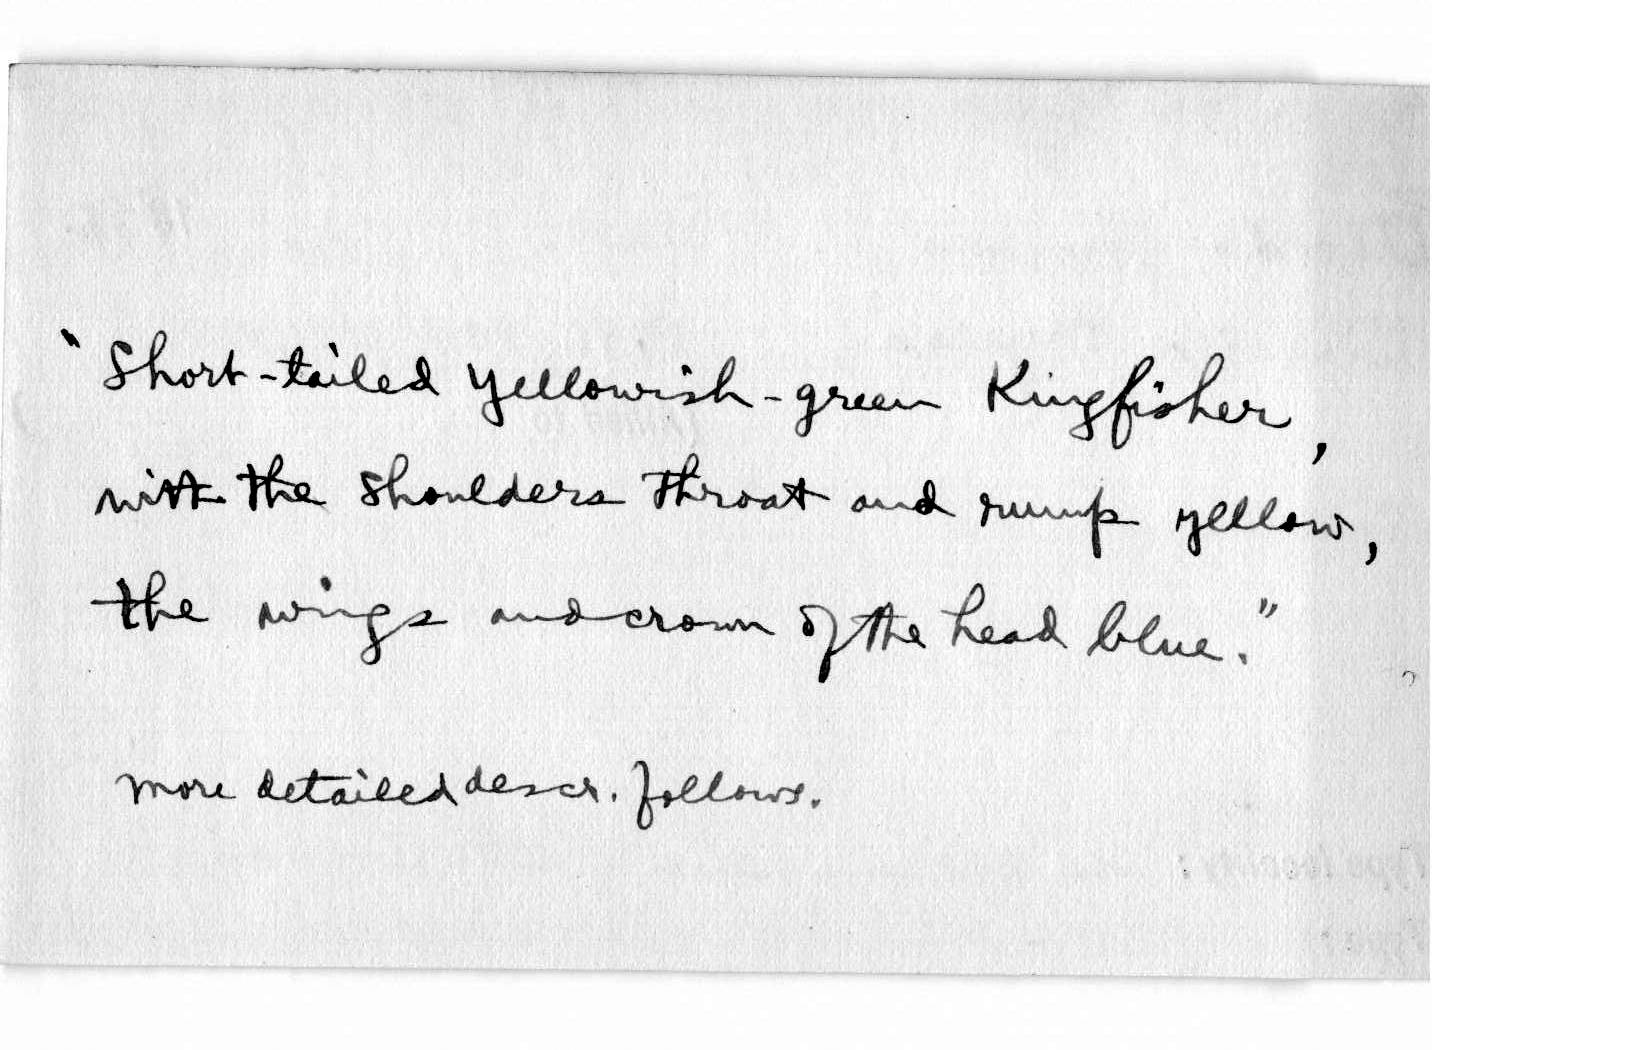 "Short-tailed yellowish-green Kingfisher,
with the shoulders throat and rump yellow,
the wings and crown of the head blue."
more detailed descr. follows.